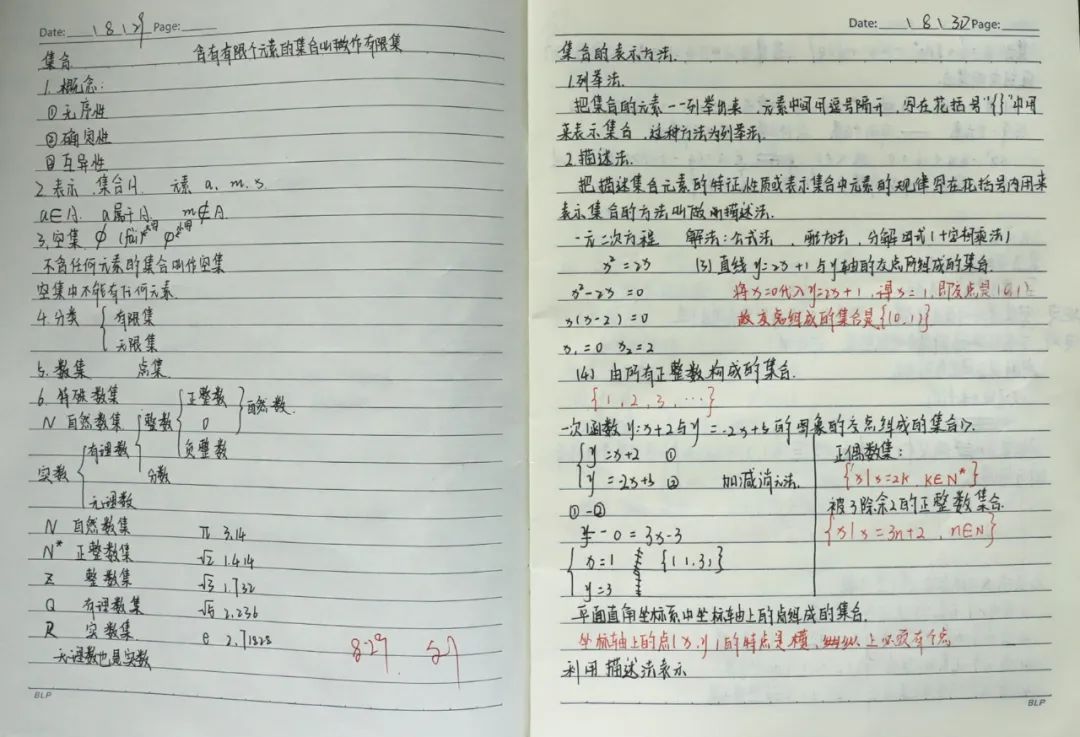 Date: 18129 Page:
集合 含有有限个元素的集合叫做作有限集
1. 概念:
①无序性
②确定性
③互异性
2. 表示. 集合A. 元素 a. m. s.
a∈A. a属于A. m∉A.
3. 空集 ∅
不含任何元素的集合叫作空集
空集中不能有任何元素.
4. 分类 { 有限集
无限集
5. 数集 点集.
6. 特殊数集
N 自然数集
实数 { 有理数 { 整数 { 正整数 0 } 自然数.
负整数
分数
无理数
N 自然数集 π 3.14
N* 正整数集 √2 1.414
Z 整数集 √3 1.732
Q 有理数集 √5 2.236
R 实数集. e 2.71828
无理数也是实数
8.29
BLP
Date: 18130 Page:
集合的表示方法.
1.列举法.
把集合的元素一一列举出来,元素中间用逗号隔开,写在花括号"{}"中用
来表示集合,这种方法为列举法.
2.描述法.
把描述集合元素的特征性质或表示集合中元素的规律写在花括号内用来
表示集合的方法叫做描述法.
一元二次方程 解法:公式法,配方法,分解因式(十字相乘法)
x²=2x (3)直线y=2x+1与y轴的交点所组成的集合.
x²-2x=0 将x=0代入y=2x+1,得x=1,即交点是(0,1)
x(x-2)=0 故交点组成的集合是{(0,1)}
x₁=0 x₂=2
(4) 由所有正整数构成的集合.
{1,2,3,…}
一次函数y=x+2与y=-2x+5的图象的交点组成的集合.
{ y=x+2 ①
y=-2x+5 ② 加减消元法.
①-②
-0=3x-3
{ x=1 {(1,3)}
y=3
正偶数集:
{x|x=2k,k∈N*}
被3除余2的正整数集合.
{x|x=3n+2,n∈N}
平面直角坐标系中坐标轴上的点组成的集合.
坐标轴上的点(x,y)的特点是横、纵上必须有个点
利用描述法表示
BLP